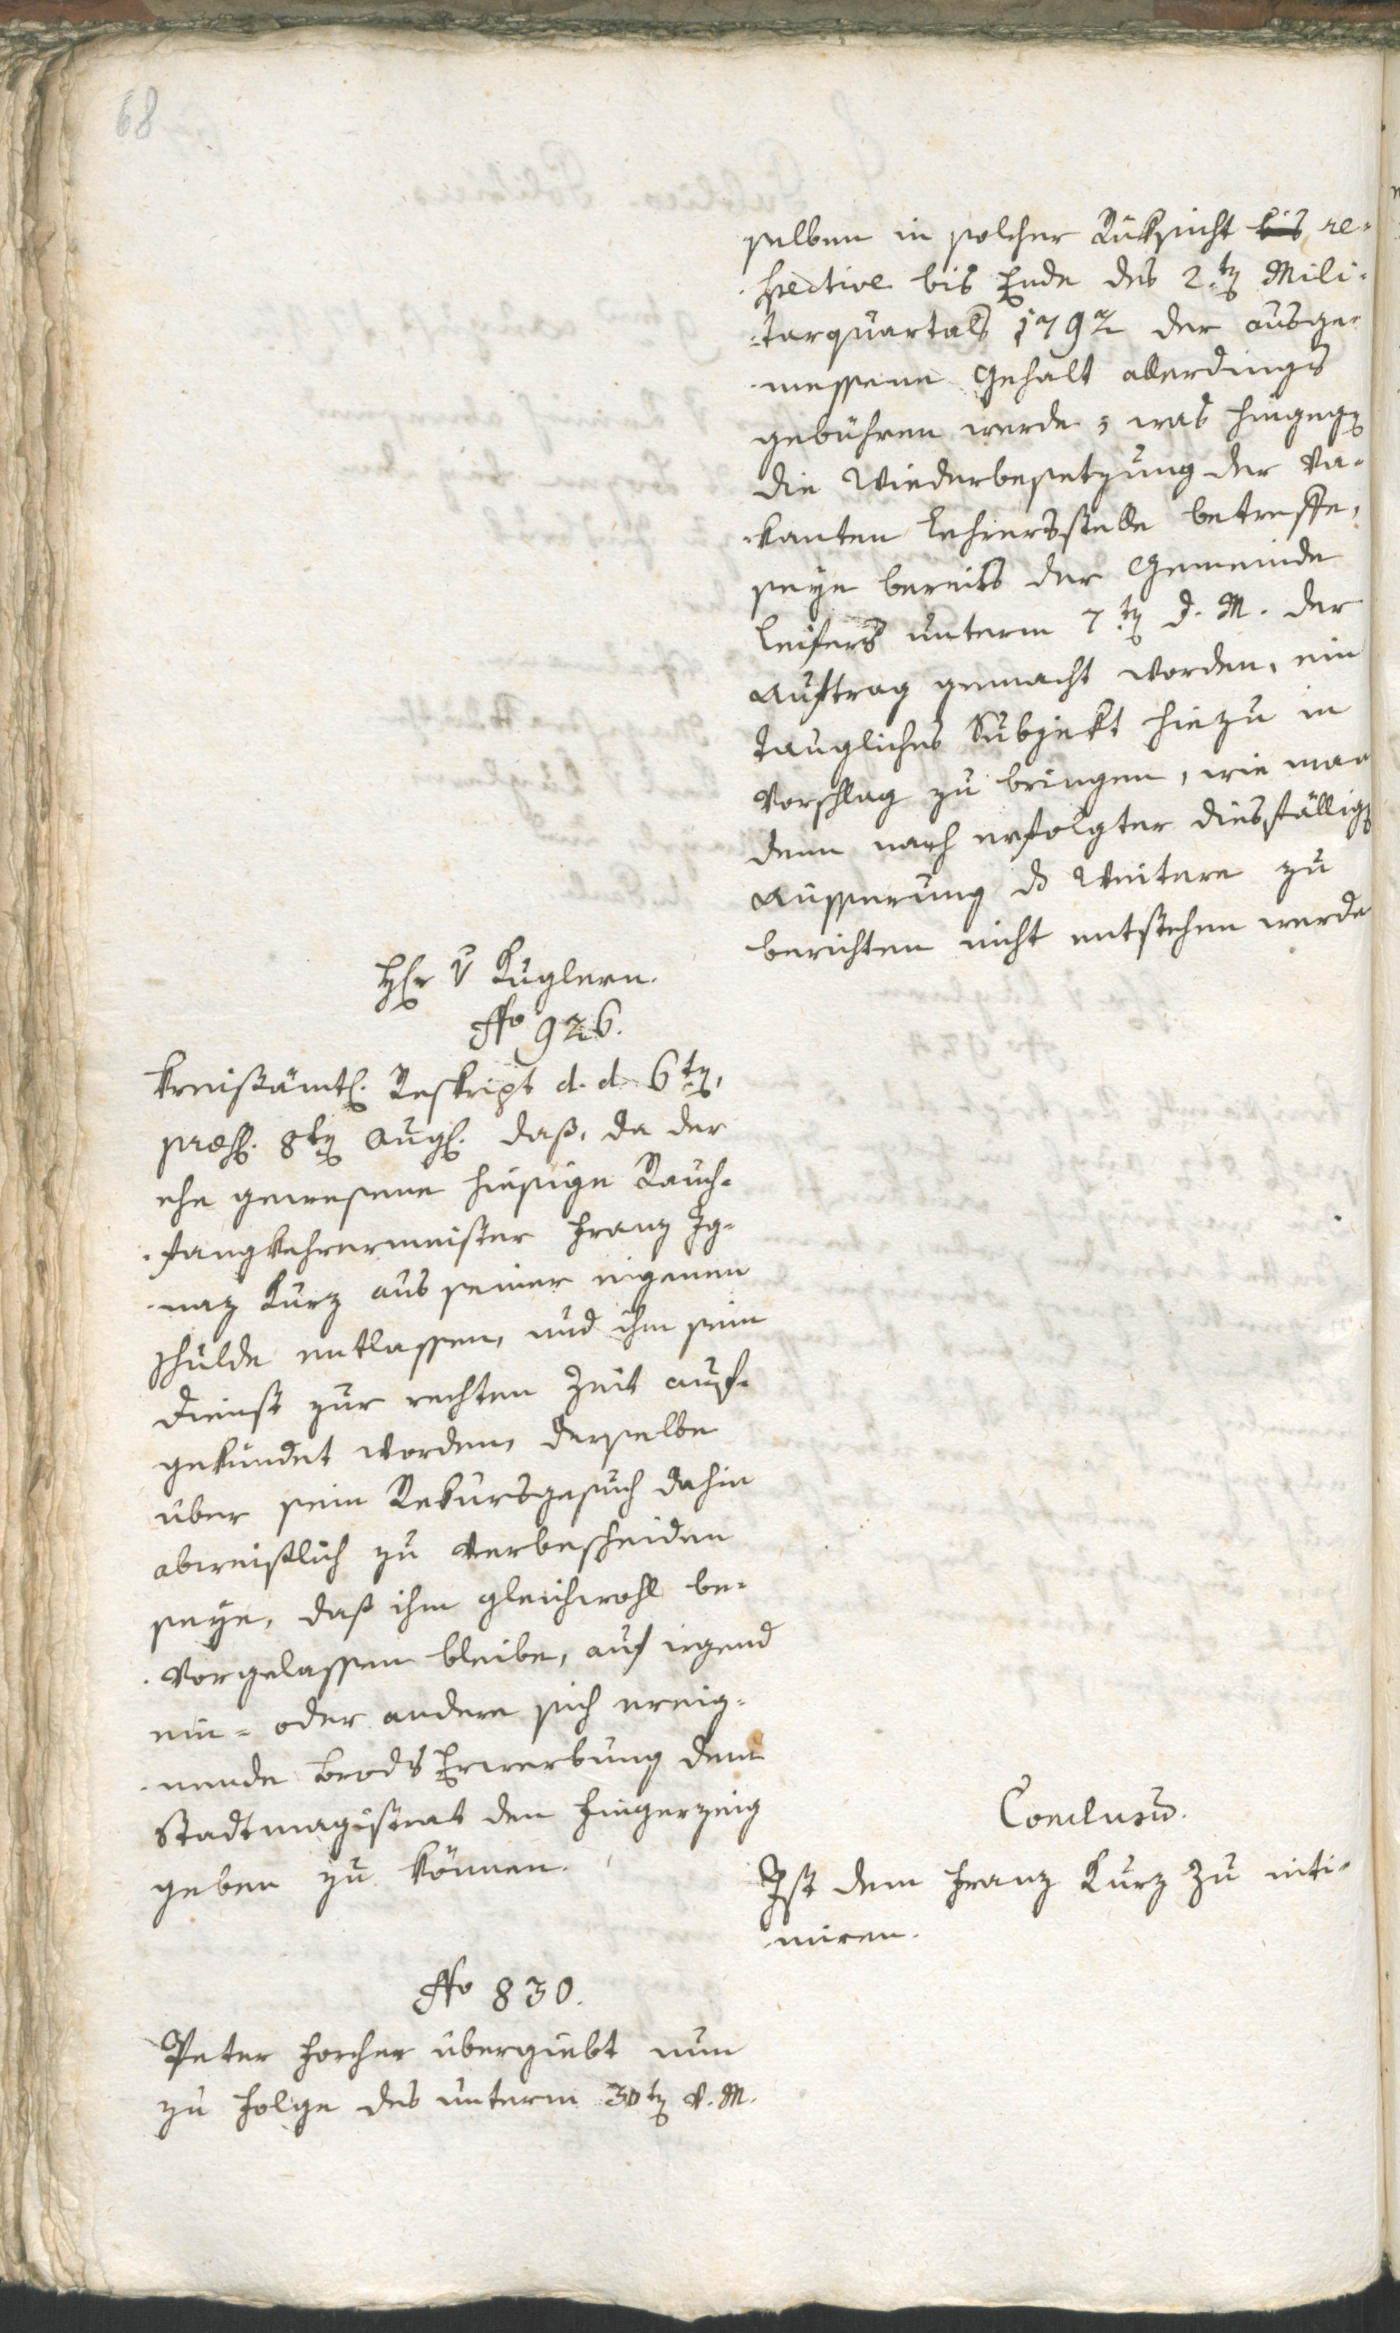 68
selben in solcher Rüksicht bis re-
spective bis Ende des 2.ten Mili-
-tarquartals 1792 der ausge-
-messene Gehalt allerdings
gebühren werde; was hingegen
die Wiederbesetzung der va-
-kanten Lehrersstelle betreffe,
seye bereits der Gemeinde
Leifers unterm 7.ten d. M. der
Auftrag gemacht worden, ein
taugliches Subjekt hiezu in
Vorschlag zu bringen, wie man
denn nach erfolgter diesfälligen
Äusserung das Weitere zu
berichten nicht entstehen werde
Hr v Kuglern.
No 926.
Kreisämtl. Reskript d. d. 6ten,
præs. 8ten Aug. daß, da der
ehe gewesene hiesige Rauch-
-fangkehrermeister Franz Ig-
-naz Kurz aus seiner eigenen
Schulde entlassen, und ihm sein
Dienst zur rechten Zeit auf-
gekündet worden, derselbe
über sein Rekursgesuch dahin
abweislich zu verbescheiden
seye, daß ihm gleichwohl be-
-vorgelassen bleibe, auf irgend
ein- oder andere sich ereig-
-nende Brods Erwerbung dem
Stadtmagistrat den Fingerzeig
geben zu können.
Conclusum.
Ist dem Franz Kurz zu inti-
-miren.
No 830.
Peter Horcher übergiebt nun
zu Folge des unterm 30ten v. M.